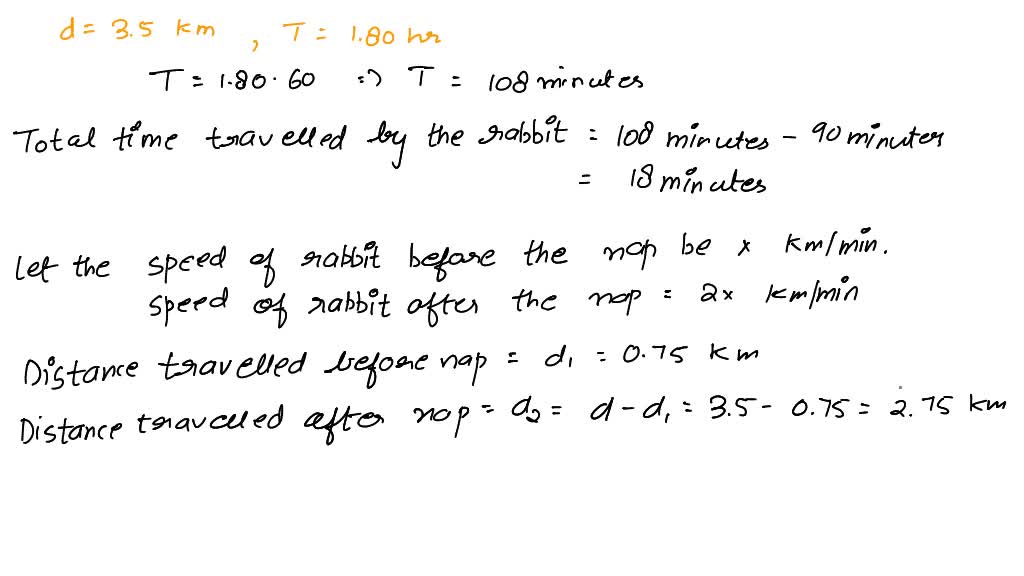 d = 3.5 km , T = 1.80 hr
T = 1.80 · 60 => T = 108 minutes
Total time travelled by the rabbit = 108 minutes - 90 minutes
= 18 minutes
Let the speed of rabbit before the nap be x km/min.
speed of rabbit after the nap = 2x km/min
Distance travelled before nap = d₁ = 0.75 km
Distance travelled after nap = d₂ = d - d₁ = 3.5 - 0.75 = 2.75 km